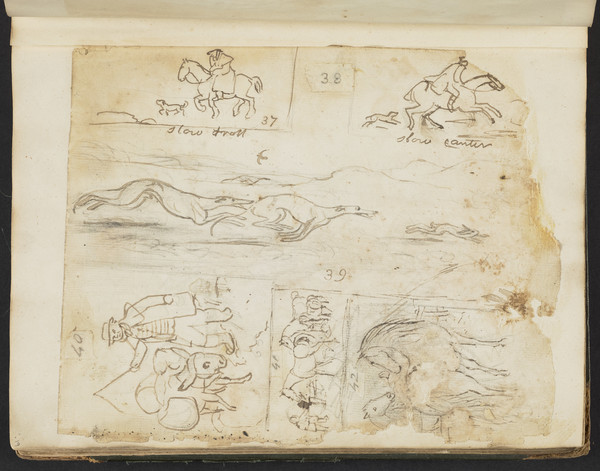 38
37
slow trott
slow canter
39
40
41
42